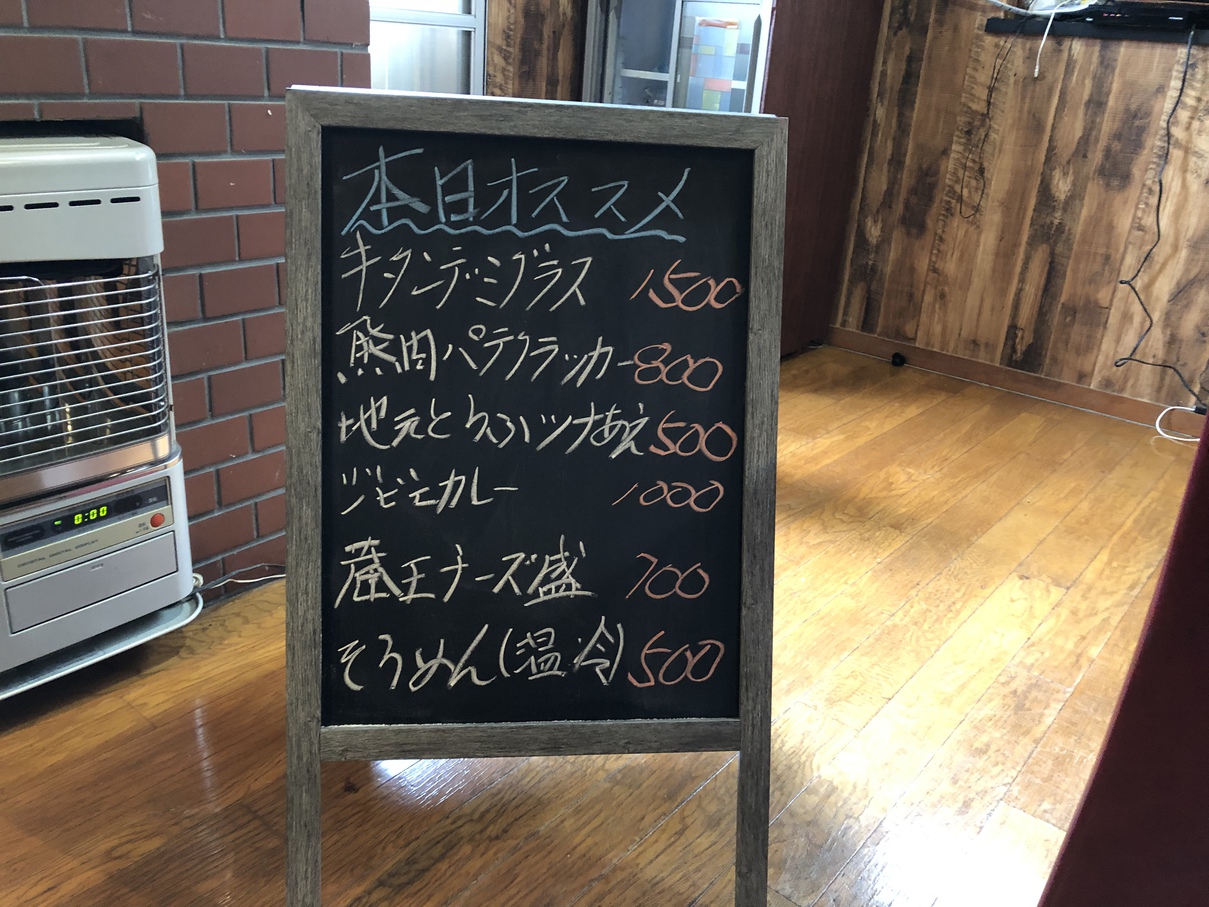 本日オススメ
牛タンデミグラス 1500
熊肉パテクラッカー 800
地元とうふツナあえ 500
ジビエカレー 1000
蔵王チーズ盛 700
そうめん(温・冷) 500
0:00